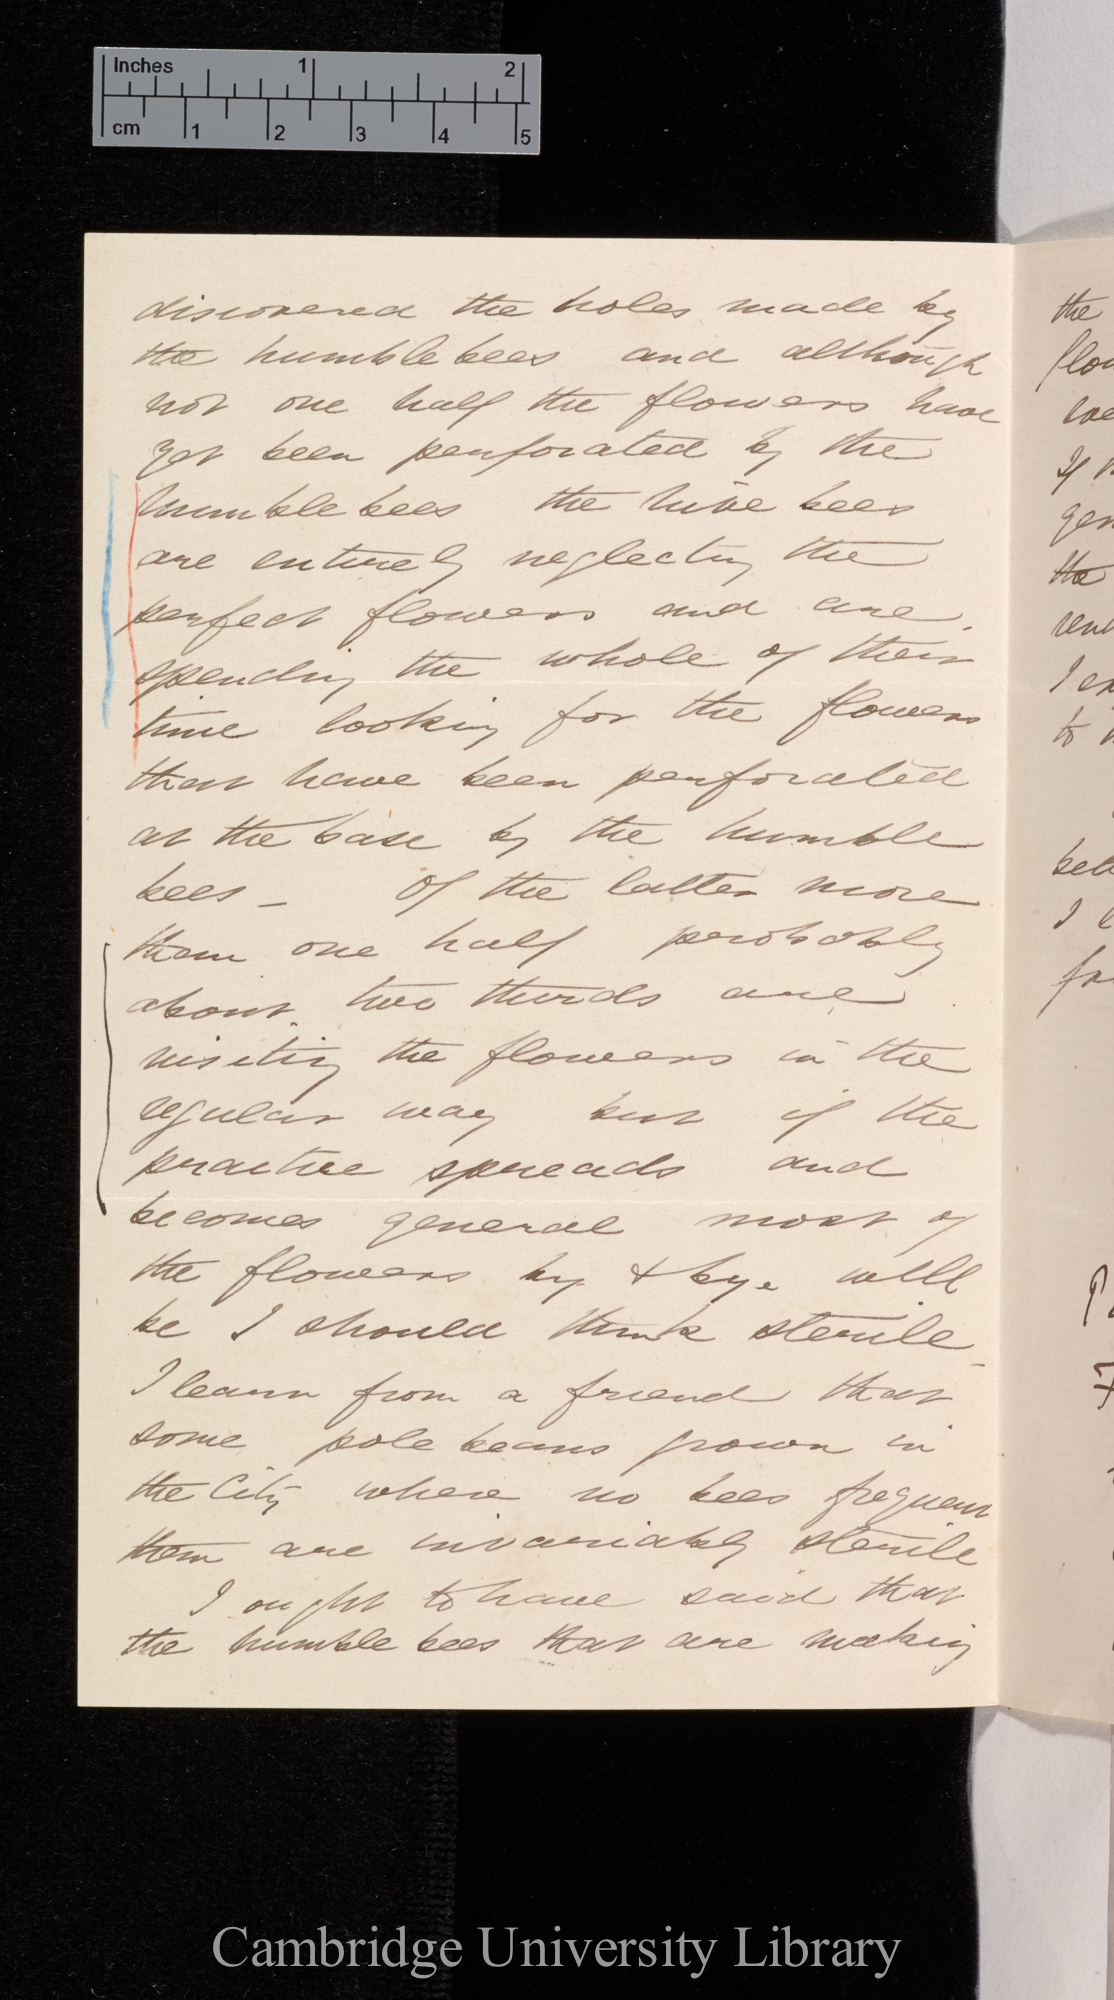 Inches 1 2
cm 1 2 3 4 5
discovered the holes made by
the humble bees and although
not one half the flowers have
yet been perforated by the
humble bees the hive bees
are entirely neglecting the
perfect flowers and are
spending the whole of their
time looking for the flowers
that have been perforated
at the base by the humble
bees_ Of the latter more
than one half probably
about two thirds are
visiting the flowers in the
regular way but if the
practice spreads and
becomes general most of
the flowers by & bye will
be I should think sterile_
I learn from a friend that
some pole beans grown in
the City where no bees frequent
them are invariably sterile
I ought to have said that
the humble bees that are making
the
to
I
Cambridge University Library